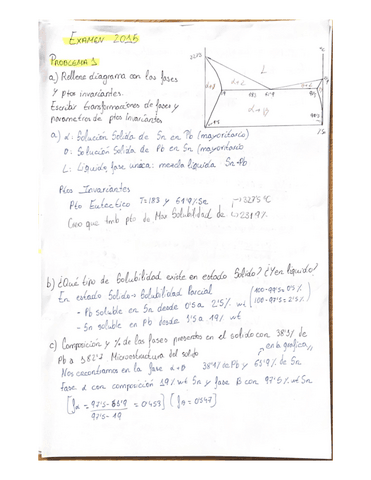 EXAMEN 2015
PROBLEMA 1
a) Rellene diagrama con las fases
y ptos invariantes.
Escribir transformaciones de fases y
parametros de ptos invariantes.
L
α+L
α+β
a) α: Solución Solida de Sn en Pb (mayoritario)
β: Solución Solida de Pb en Sn (mayoritario
L: Liquido, fase unica: mezcla liquida Sn-Pb
Ptos Invariantes
Pto Eutectico T=183 y 61'9 %Sn
Creo que tmb pto de Max Solubilidad de
b) ¿Qué tipo de Solubilidad existe en estado Solido? ¿Y en liquido?
En estado Solido → Solubilidad Parcial
- Pb soluble en Sn desde 0'5 a 2'5% wt
- Sn soluble en Pb desde 1'5 a 19% wt
(100-99'5=0'5%
100-97'5=2'5%)
c) Composición y % de las fases presentes en el solido con 38'1% de
Pb a 182°? Microestructura del solido
en la grafica
Nos encontramos en la fase α+β 38'1% de Pb y 61'9% de Sn
Fase α con composición 19% wt Sn y fase β con 97'5% wt Sn
[fα = 97'5-61'9 / 97'5-19 = 0'453] (fβ = 0'547)